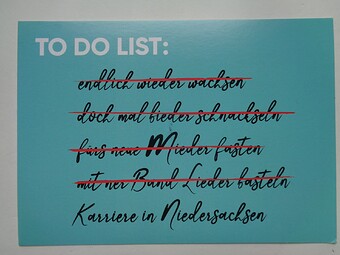 TO DO LIST:
endlich wieder wachsen
doch mal bieder schnackseln
fürs neue Mieder fasten
mit ner Band Lieder basteln
Karriere in Niedersachsen